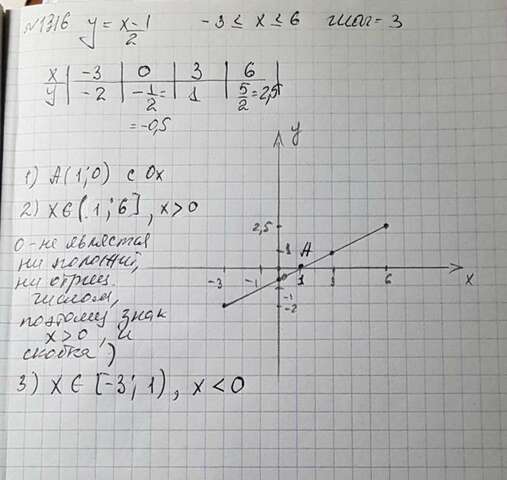 №1316 y = x-1/2 -3 ≤ x ≤ 6 шаг = 3
x | -3 | 0 | 3 | 6
y | -2 | -1/2 = | 1 | 5/2 = 2,5
= -0,5
y
1) A(1;0) с Ox
2) x ∈ (1; 6], x > 0
0 - не является
ни полож.,
ни отриц.
числом,
поэтому знак
x > 0, и
скобка )
3) x ∈ [-3; 1), x < 0
2,5
1 A
-3 -1 1 3 6 x
-1
-2